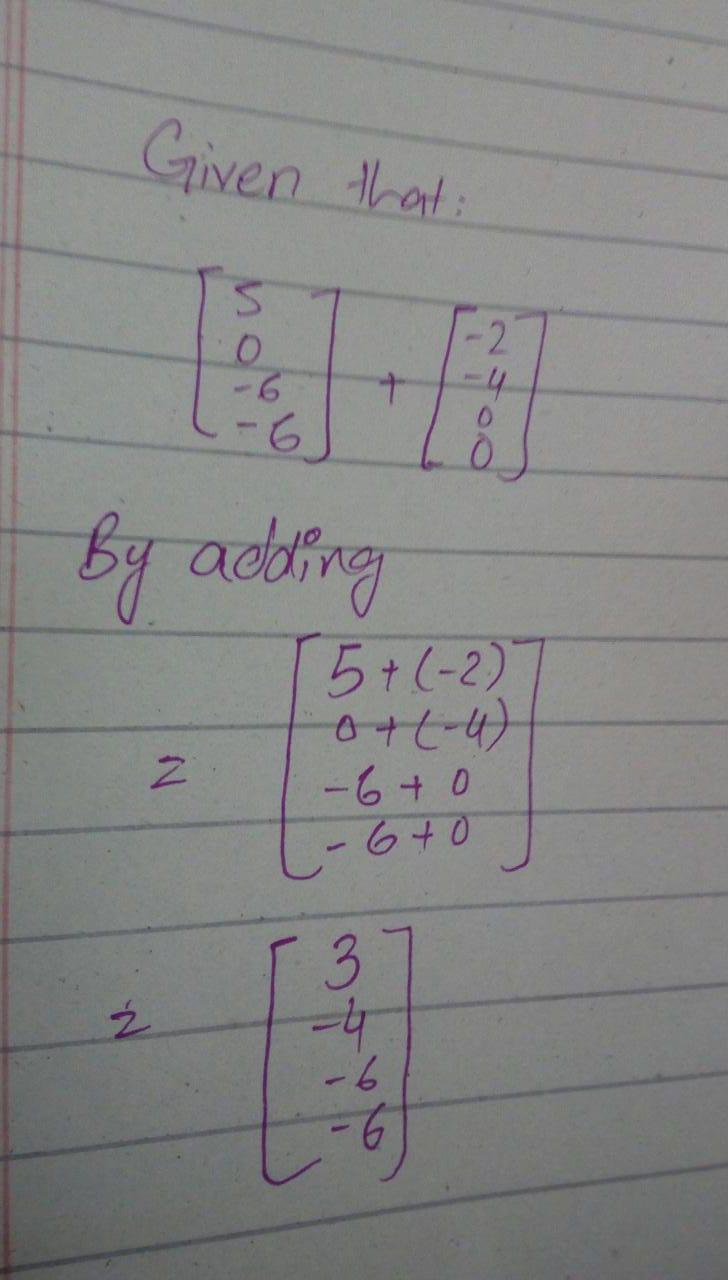 Given that:
[5 0 -6 -6] + [-2 -4 0 0]
By adding
= [5+(-2) 0+(-4) -6+0 -6+0]
= [3 -4 -6 -6]